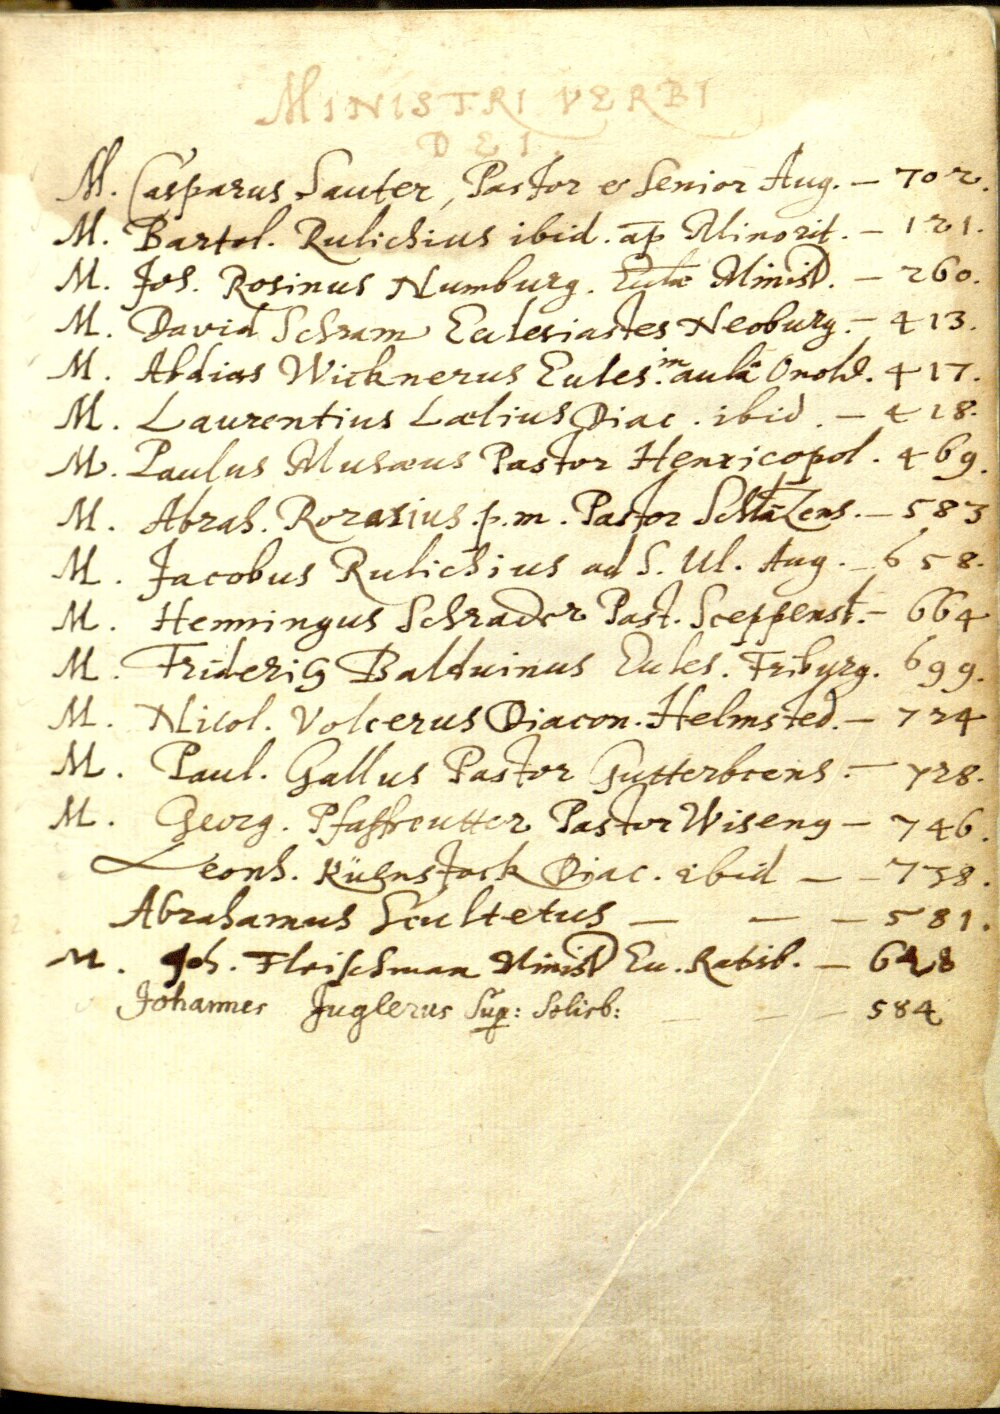 MINISTRI VERBI
DEI.
M. Casparus Sauter, Pastor & Senior Aug. — 702.
M. Bartol. Rulichius ibid. ap Minorit. — 121.
M. Joh. Rosinus Numburg. Eccliæ Minist. — 260.
M. David Schram Ecclesiastes Neoburg. — 413.
M. Abdias Wicknerus Eccles. in aulâ Onold. 417.
M. Laurentius Lælius Diac. ibid. — 418.
M. Paulus Musæus Pastor Henricopol. 469.
M. Abrah. Rorarius p.m. Pastor — 583
M. Jacobus Rulichius ad S. Ul. Aug. — 658.
M. Henningus Schrader Past. Sceppenst. — 664
M. Friderich Balduinus Eccles. Friburg. 699.
M. Nicol. Volcerus Diacon. Helmsted. — 724
M. Paul. Gallus Pastor — 728.
M. Georg. Pfaffreutter Pastor Wiseng — 746.
Leonh. Küenstock Diac. ibid — — 738.
Abrahamus Scultetus — — — 581.
M. Joh. Fleischman Minist Ec. Ratisb. — 648
Johannes Juglerus Sup: — — — 584